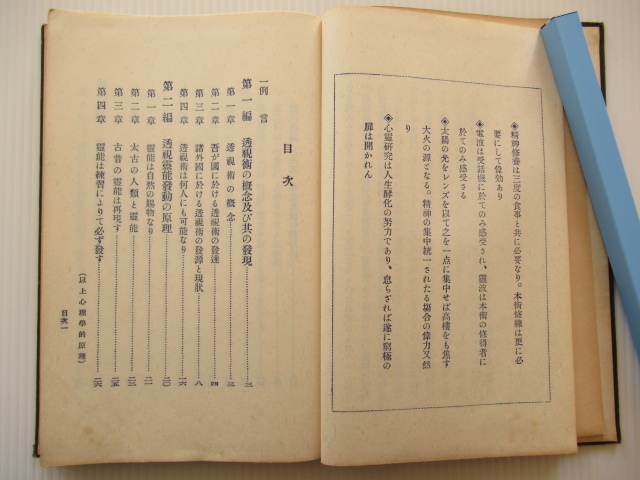 ◈精神修養は三度の食事と共に必要なり。本術修練は更に必
要にして偉効あり
◈電波は受話機に於てのみ感受され、靈波は本術の修得者に
於てのみ感受さる
◈太陽の光をレンズを以て之を一点に集中せば高樓をも焦す
大火の源となる。精神の集中統一されたる場合の偉力又然
り
◈心靈研究は人生醇化の努力であり、怠らざれば遂に窮極の
扉は開かれん
目次
一例言
第一編 透視術の概念及び其の發現 一
第一章 透視術の概念 三
第二章 吾が國に於ける透視術の發達 四
第三章 諸外國に於ける透視術の發源と現狀 八
第四章 透視術は何人にも可能なり 一六
第二編 透視靈能發動の原理 二〇
第一章 靈能は自然の賜物なり 二一
第二章 太古の人類と靈能 二三
第三章 古昔の靈能は再現す 二五
第四章 靈能は練習によりて必ず發す 二六
(以上心理學的原理)
目次一